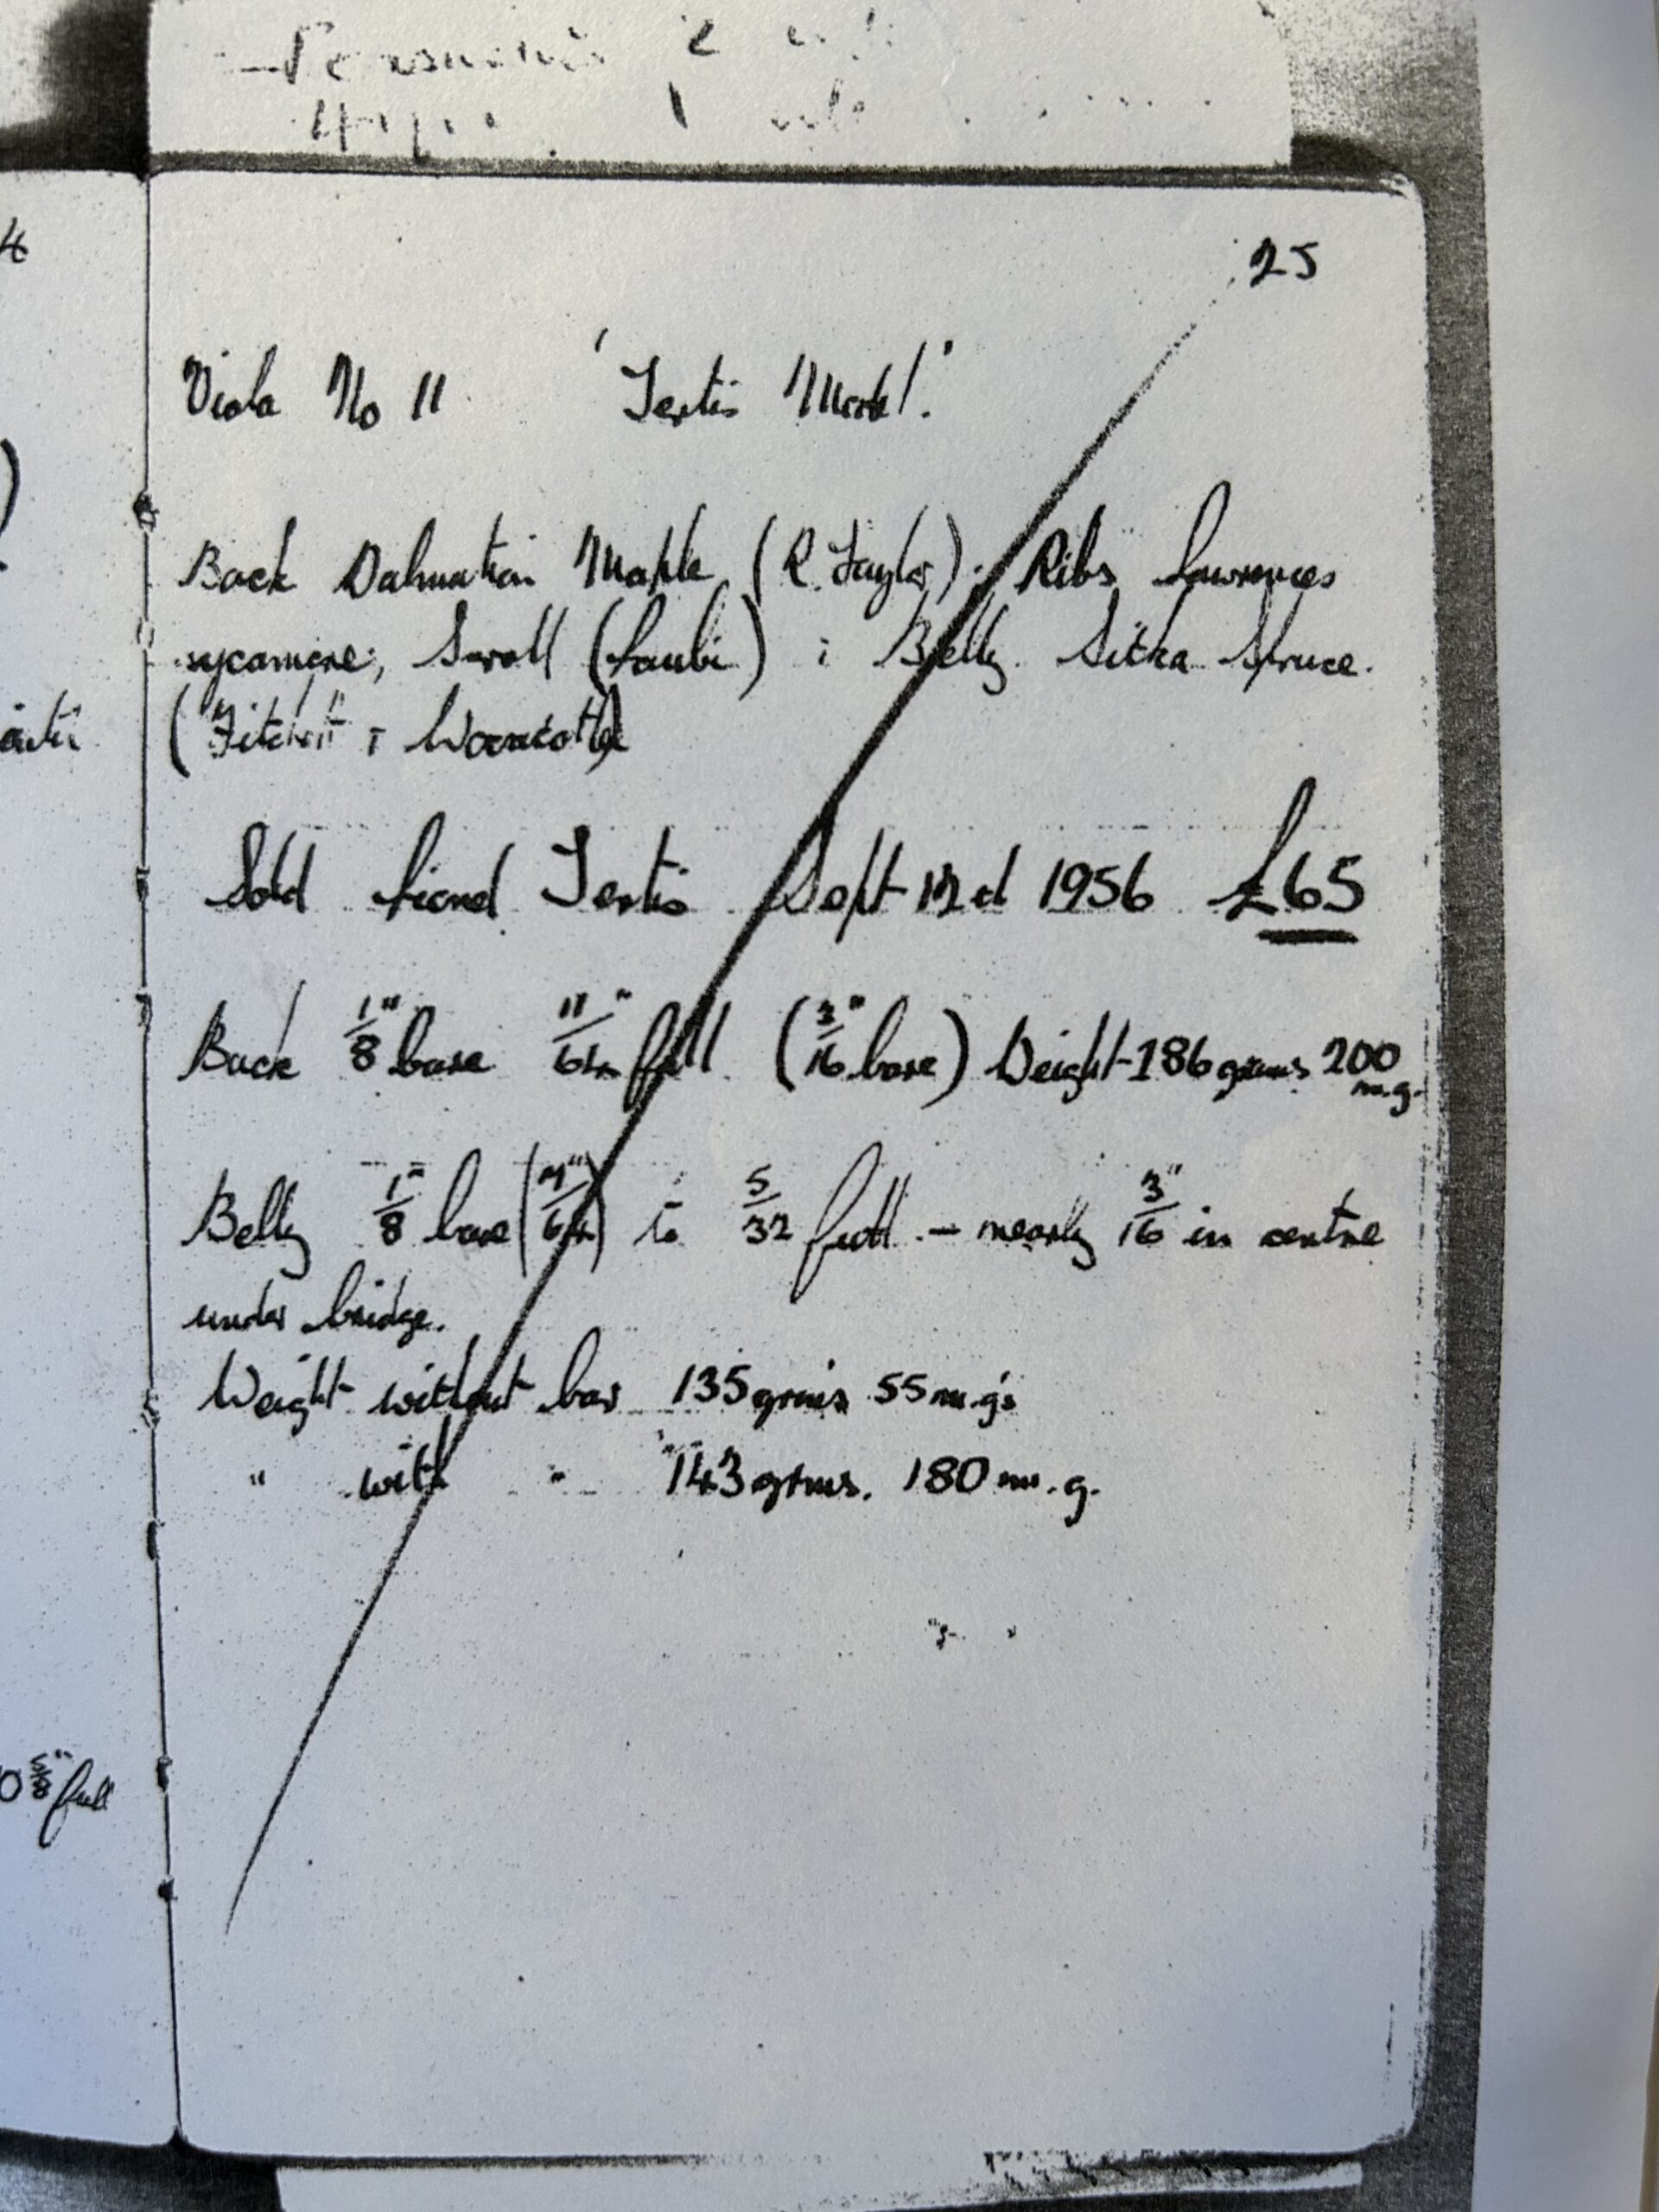 25
Viola No 11 'Tertis Model.'
Back Dalmatian Maple (R. Taylor). Ribs Lawrences
sycamore; Scroll (Laubi) ; Belly Sitka Spruce.
Sold Lionel Tertis Sept 1956 £65
Back 1/8" bare 11/64" full (3/16" bare) Weight - 186 grms 200 m.g.
Belly 1/8" bare to 5/32 full - nearly 3/16" in centre
under bridge.
Weight without bar 135 grms 55 m.g's
" with " 143 grms. 180 m.g.
5/8" full